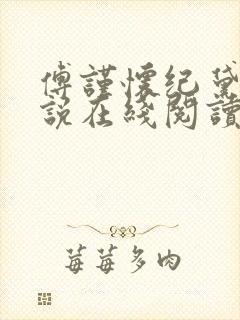 傅謹懷紀黛
說在綫閱讀
莓莓多肉